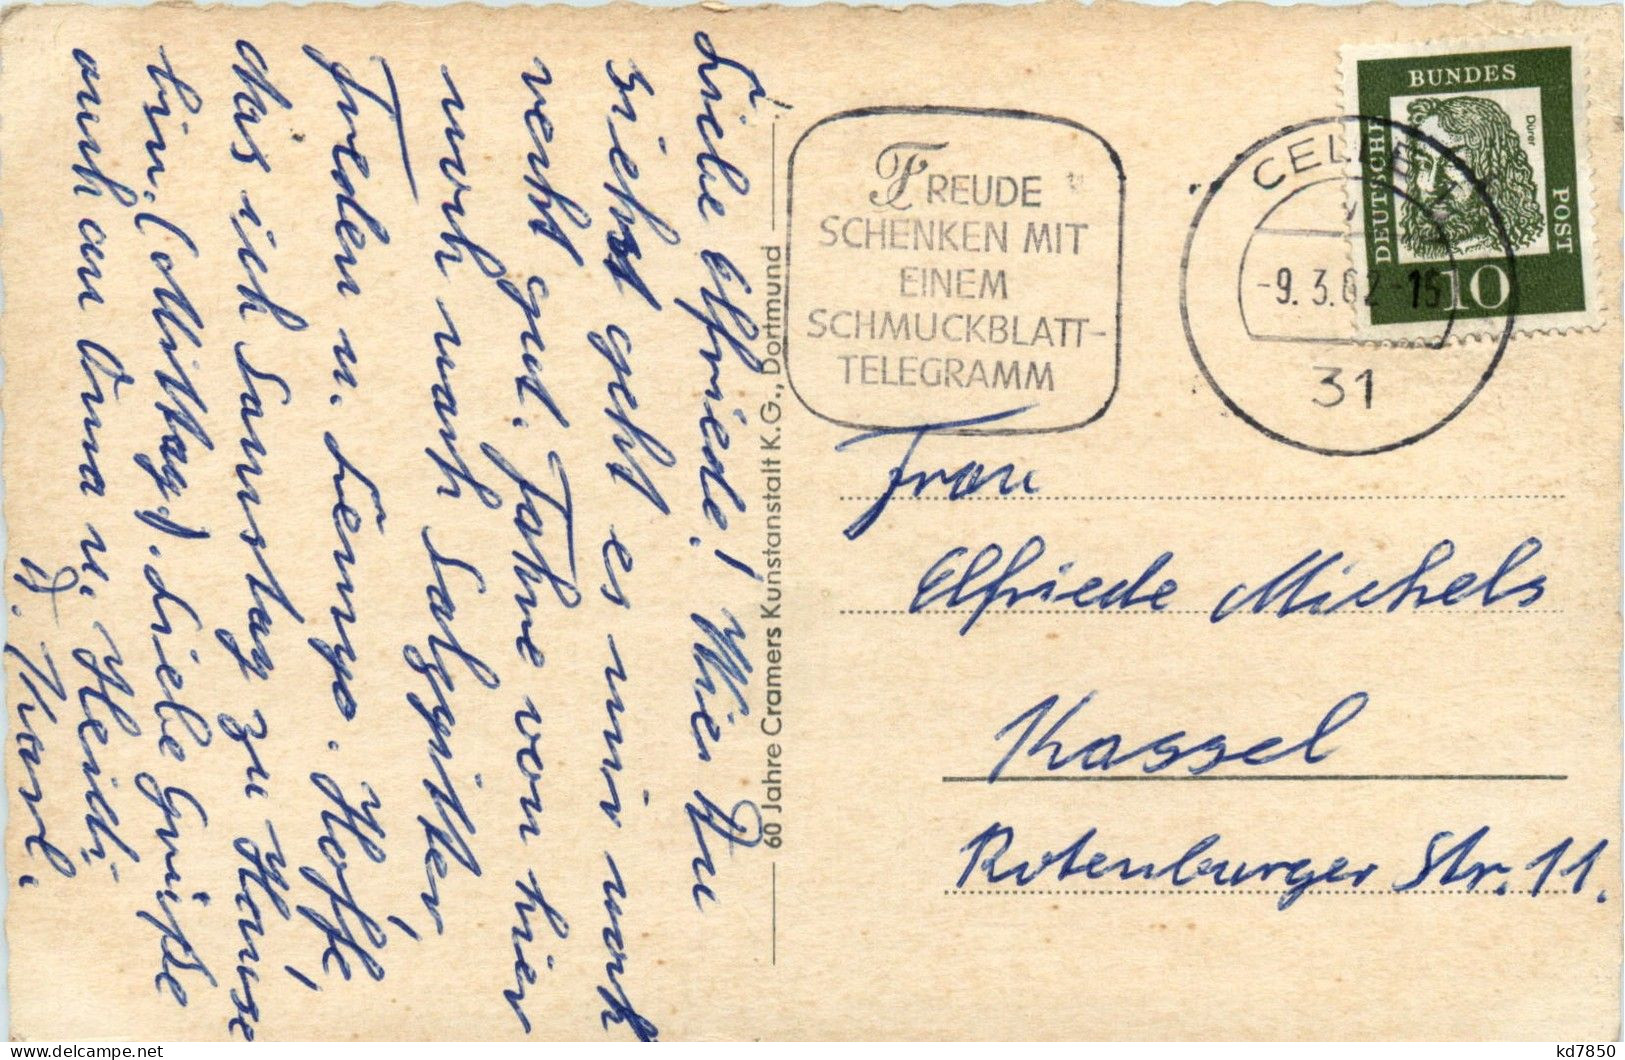 Liebe Elfriede! Wie Du
siehst geht es mir noch
recht gut. Fahre von hier
noch nach Salzgitter,
Freden u. Lemgo. Hoffe,
das ich Samstag zu Hause
bin. (Mittag). Liebe Grüße
auch an Oma u. Heidi
D. Karl.
60 Jahre Cramers Kunstanstalt K.G., Dortmund
FREUDE
SCHENKEN MIT
EINEM
SCHMUCKBLATT-
TELEGRAMM
CELLE
-9.3.62-15
31
DEUTSCHE
BUNDES
POST
Dürer
10
Frau
Elfriede Michels
Kassel
Rotenburger Str. 11.
kd7850